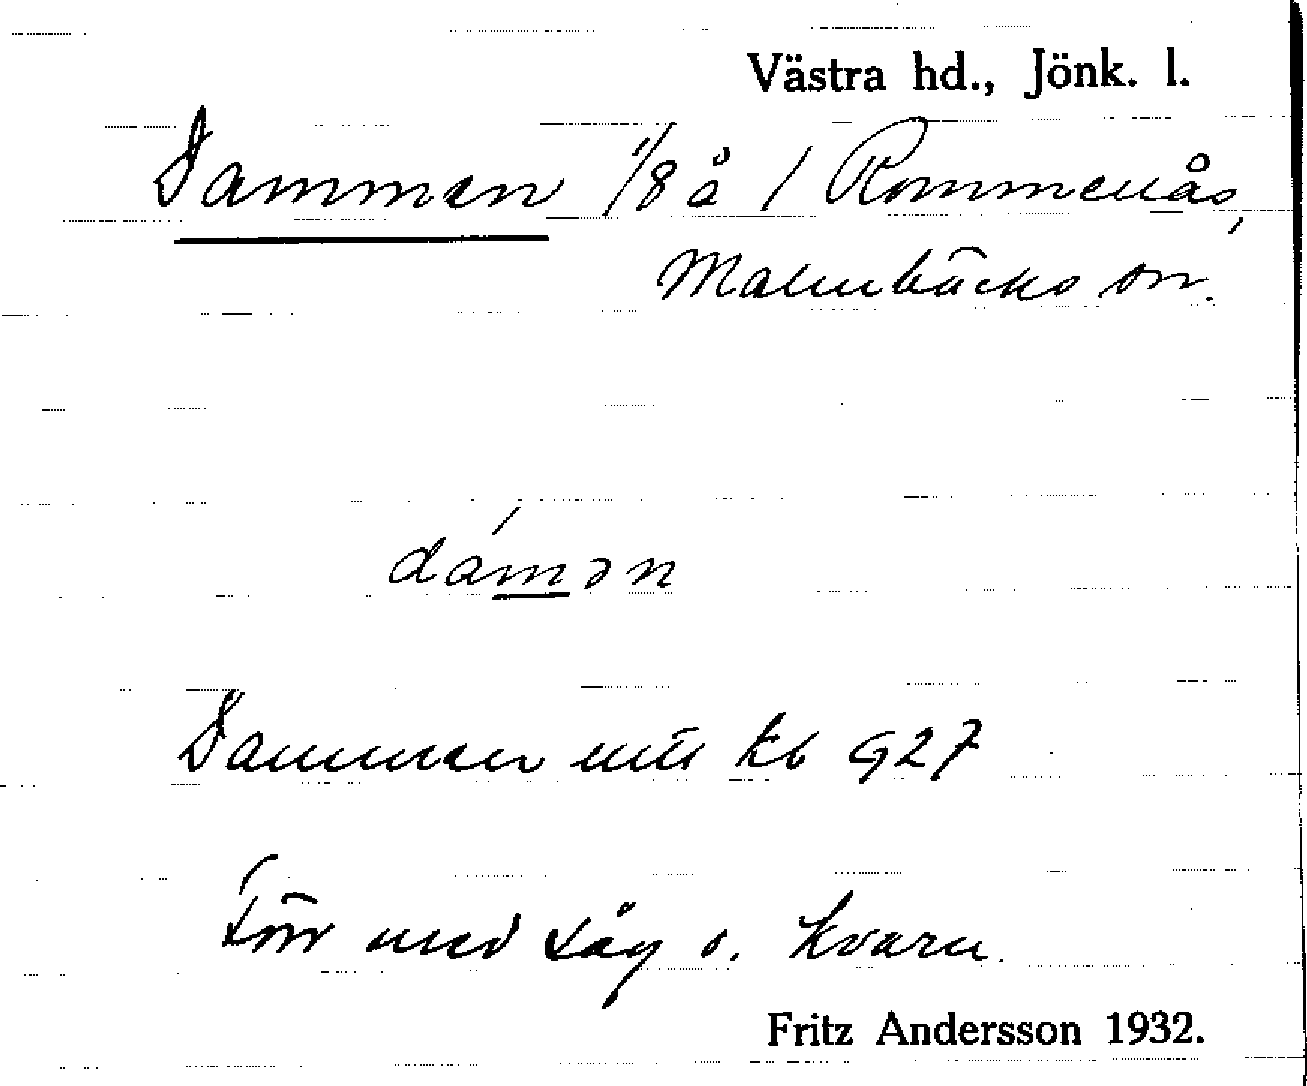 Västra hd., Jönk. l.
Dammen 1/8 å / Rommenås,
Malmbäcks sn.
dámən
Dammen kb 927
Förr med såg o. kvarn.
Fritz Andersson 1932.